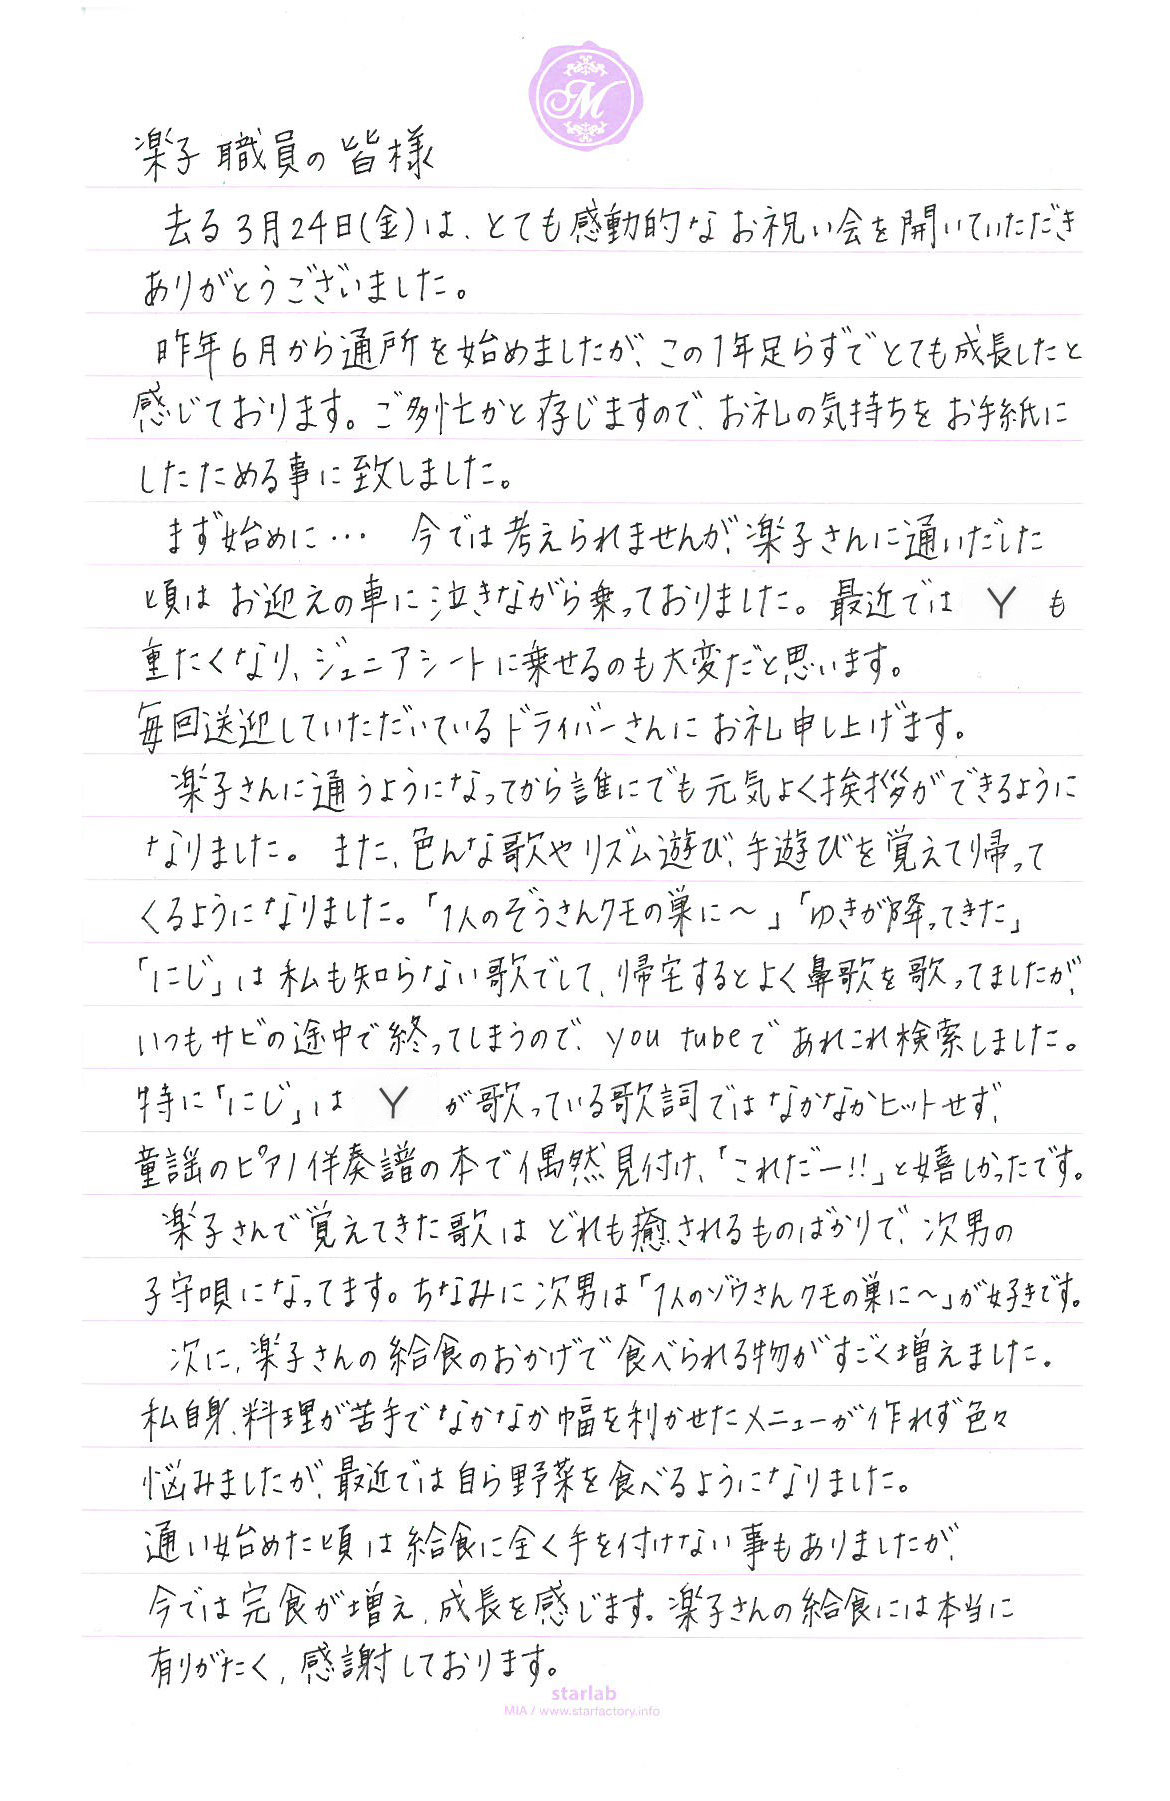 M
楽子 職員の皆様
去る3月24日(金)は、とても感動的なお祝い会を開いていただき
ありがとうございました。
昨年6月から通所を始めましたが、この1年足らずでとても成長したと
感じております。ご多忙かと存じますので、お礼の気持ちをお手紙に
したためる事に致しました。
まず始めに… 今では考えられませんが、楽子さんに通いだした
頃はお迎えの車に泣きながら乗っておりました。最近では Y も
重たくなり、ジュニアシートに乗せるのも大変だと思います。
毎回送迎していただいているドライバーさんにお礼申し上げます。
楽子さんに通うようになってから誰にでも元気よく挨拶ができるように
なりました。また、色んな歌やリズム遊び、手遊びを覚えて帰って
くるようになりました。「1人のぞうさんクモの巣に〜」「ゆきが降ってきた」
「にじ」は私も知らない歌でして、帰宅するとよく鼻歌を歌ってましたが、
いつもサビの途中で終ってしまうので、you tubeであれこれ検索しました。
特に「にじ」は Y が歌っている歌詞ではなかなかヒットせず、
童謡のピアノ伴奏譜の本で偶然見付け、「これだー!!」と嬉しかったです。
楽子さんで覚えてきた歌はどれも癒されるものばかりで、次男の
子守唄になってます。ちなみに次男は「1人のゾウさんクモの巣に〜」が好きです。
次に、楽子さんの給食のおかげで食べられる物がすごく増えました。
私自身、料理が苦手でなかなか幅を利かせたメニューが作れず色々
悩みましたが、最近では自ら野菜を食べるようになりました。
通い始めた頃は給食に全く手を付けない事もありましたが、
今では完食が増え、成長を感じます。楽子さんの給食には本当に
有りがたく、感謝しております。
starlab
MIA / www.starfactory.info